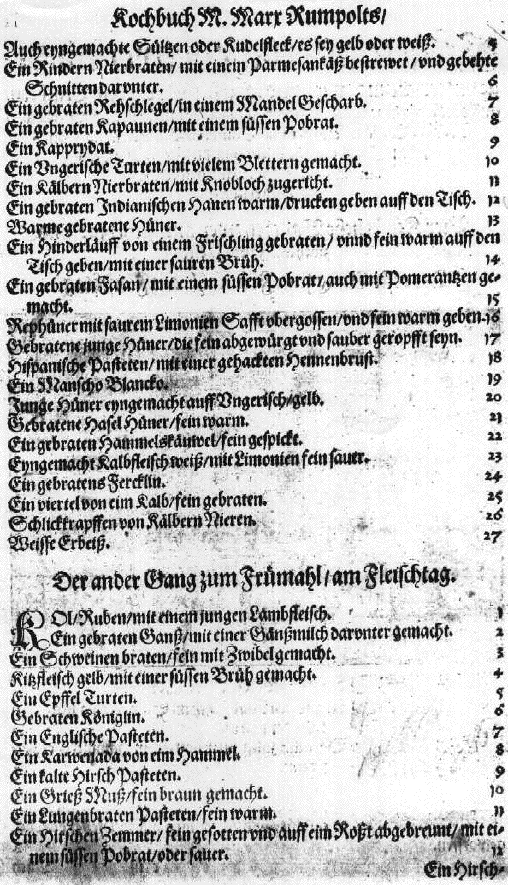 Kochbuch M. Marx Rumpolts/
Auch eyngemachte Sültzen oder Kudelfleck/es sey gelb oder weiß. 5
Ein Rindern Nierbraten/ mit einem Parmesankäß bestrewet / vnd gebehte
Schnitten darvnter. 6
Ein gebraten Rehschlegel/in einem Mandel Gescharb. 7
Ein gebraten Kapaunen/mit einem süssen Pobrat. 8
Ein Kapprydat. 9
Ein Vngerische Turten/mit vielem Blettern gemacht. 10
Ein Kälbern Nierbraten/mit Knobloch zugericht. 11
Ein gebraten Indianischen Hanen warm/drucken geben auff den Tisch. 12
Warme gebratene Hüner. 13
Ein Hinderläuff von einem Frischling gebraten/ vnnd fein warm auff den
Tisch geben/mit einer sauren Brüh. 14
Ein gebraten Fasan/ mit einem süssen Pobrat/ auch mit Pomerantzen ge-
macht. 15
Rephüner mit saurem Limonien Safft vbergossen/vnd fein warm geben. 16
Gebratene junge Hüner/die fein abgewürgt vnd sauber geropfft seyn. 17
Hispanische Pasteten/ mit einer gehackten Hennenbrust. 18
Ein Manscho Blancko. 19
Junge Hüner eyngemacht auff Vngerisch/gelb. 20
Gebratene Hasel Hüner/fein warm. 21
Ein gebraten Hammelskäuwel/fein gespickt. 22
Eyngemacht Kalbfleisch weiß/mit Limonien fein sauer. 23
Ein gebratens Fercklin. 24
Ein viertel von eim Kalb/fein gebraten. 25
Schlickkrapffen von Kälbern Nieren. 26
Weisse Erbeiß. 27
Der ander Gang zum Frümahl/ am Fleischtag.
KOl/Ruben/mit einem jungen Lambfleisch. 1
Ein gebraten Ganß/mit einer Gänßmilch darvnter gemacht. 2
Ein Schweinen braten/fein mit Zwibel gemacht. 3
Kitzfleisch gelb/mit einer süssen Brüh gemacht. 4
Ein Epffel Turten. 5
Gebraten Königlin. 6
Ein Englische Pasteten. 7
Ein Karwenada von eim Hammel. 8
Ein kalte Hirsch Pasteten. 9
Ein Grieß Muß/fein braun gemacht. 10
Ein Lungenbraten Pasteten/fein warm. 11
Ein Hirschen Zemmer/ fein gesotten vnd auff eim Roßt abgebreunt/ mit ei-
nem süssen Pobrat/oder sauer. 12
Ein Hirsch-